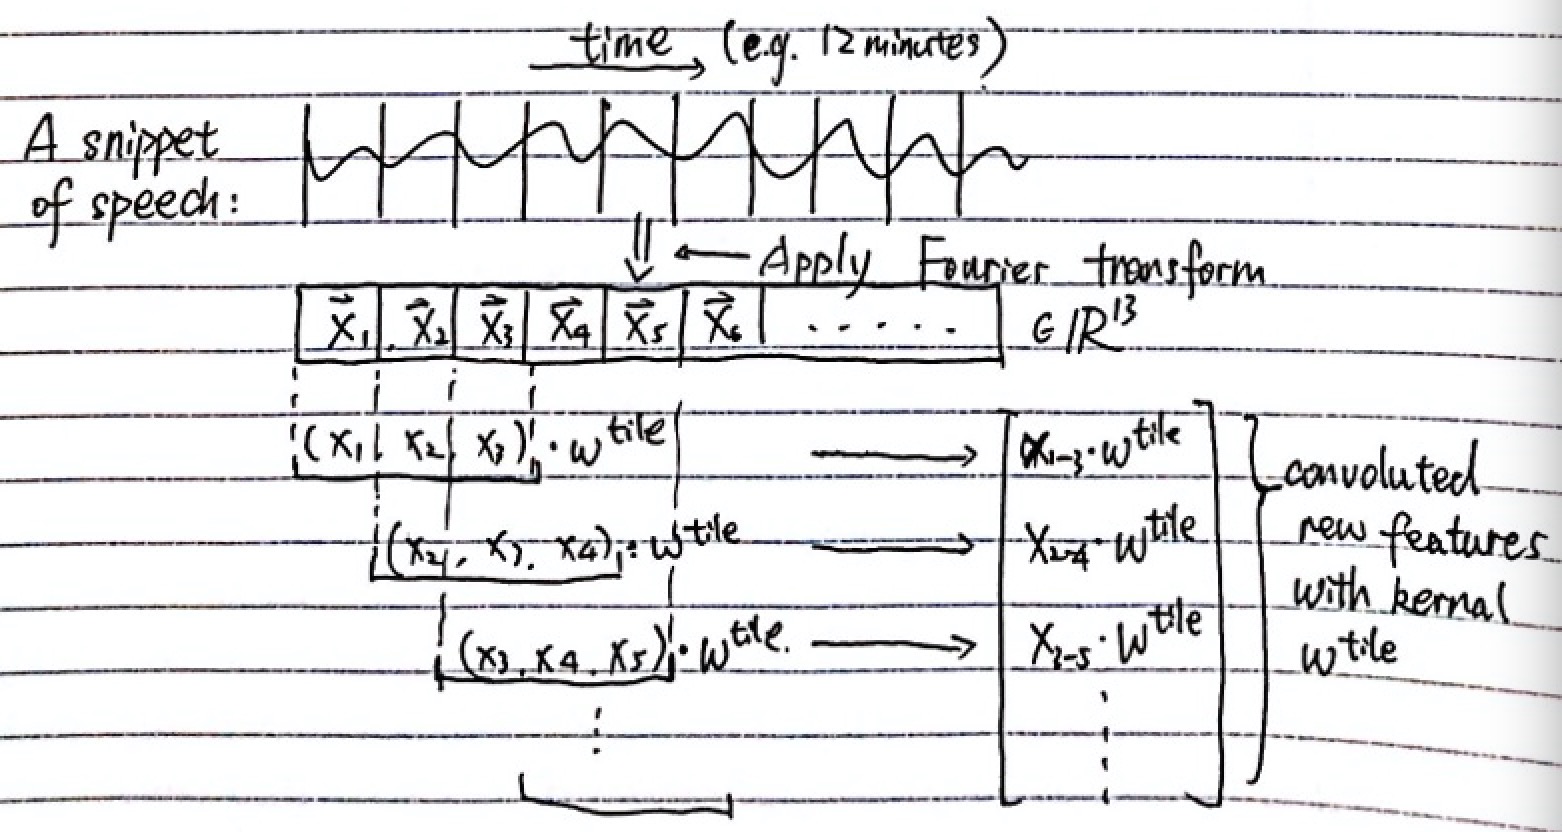 time (e.g. 12 minutes)
A snippet
of speech:
Apply Fourier transform
X⃗₁ X⃗₂ X⃗₃ X⃗₄ X⃗₅ X⃗₆ ..... ∈ ℝ¹³
(x₁ x₂ x₃) · w^tile → x₁₋₃ · w^tile
(x₂, x₃, x₄) · w^tile → x₂₋₄ · w^tile
(x₃, x₄, x₅) · w^tile. → X₃₋₅ · w^tile
convoluted
new features
with kernal
w^tile